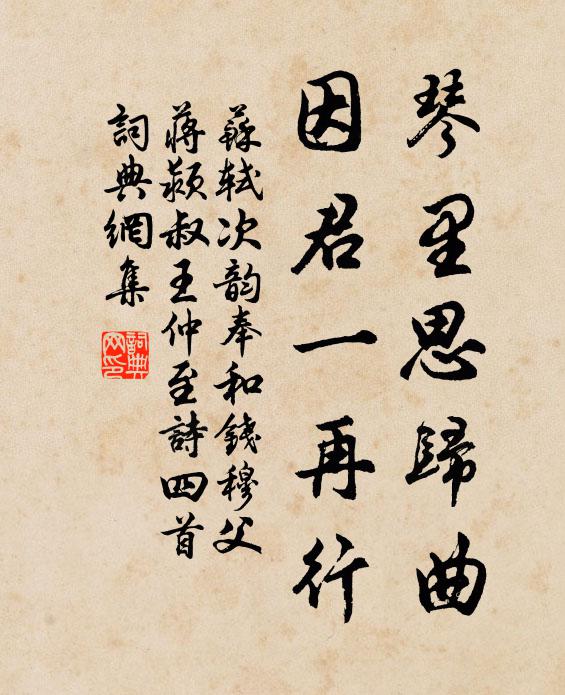 琴里思歸曲
因君一再行
蘇軾次韵奉和錢穆父
蔣穎叔王仲至詩四首
詞典網集
詞典网印